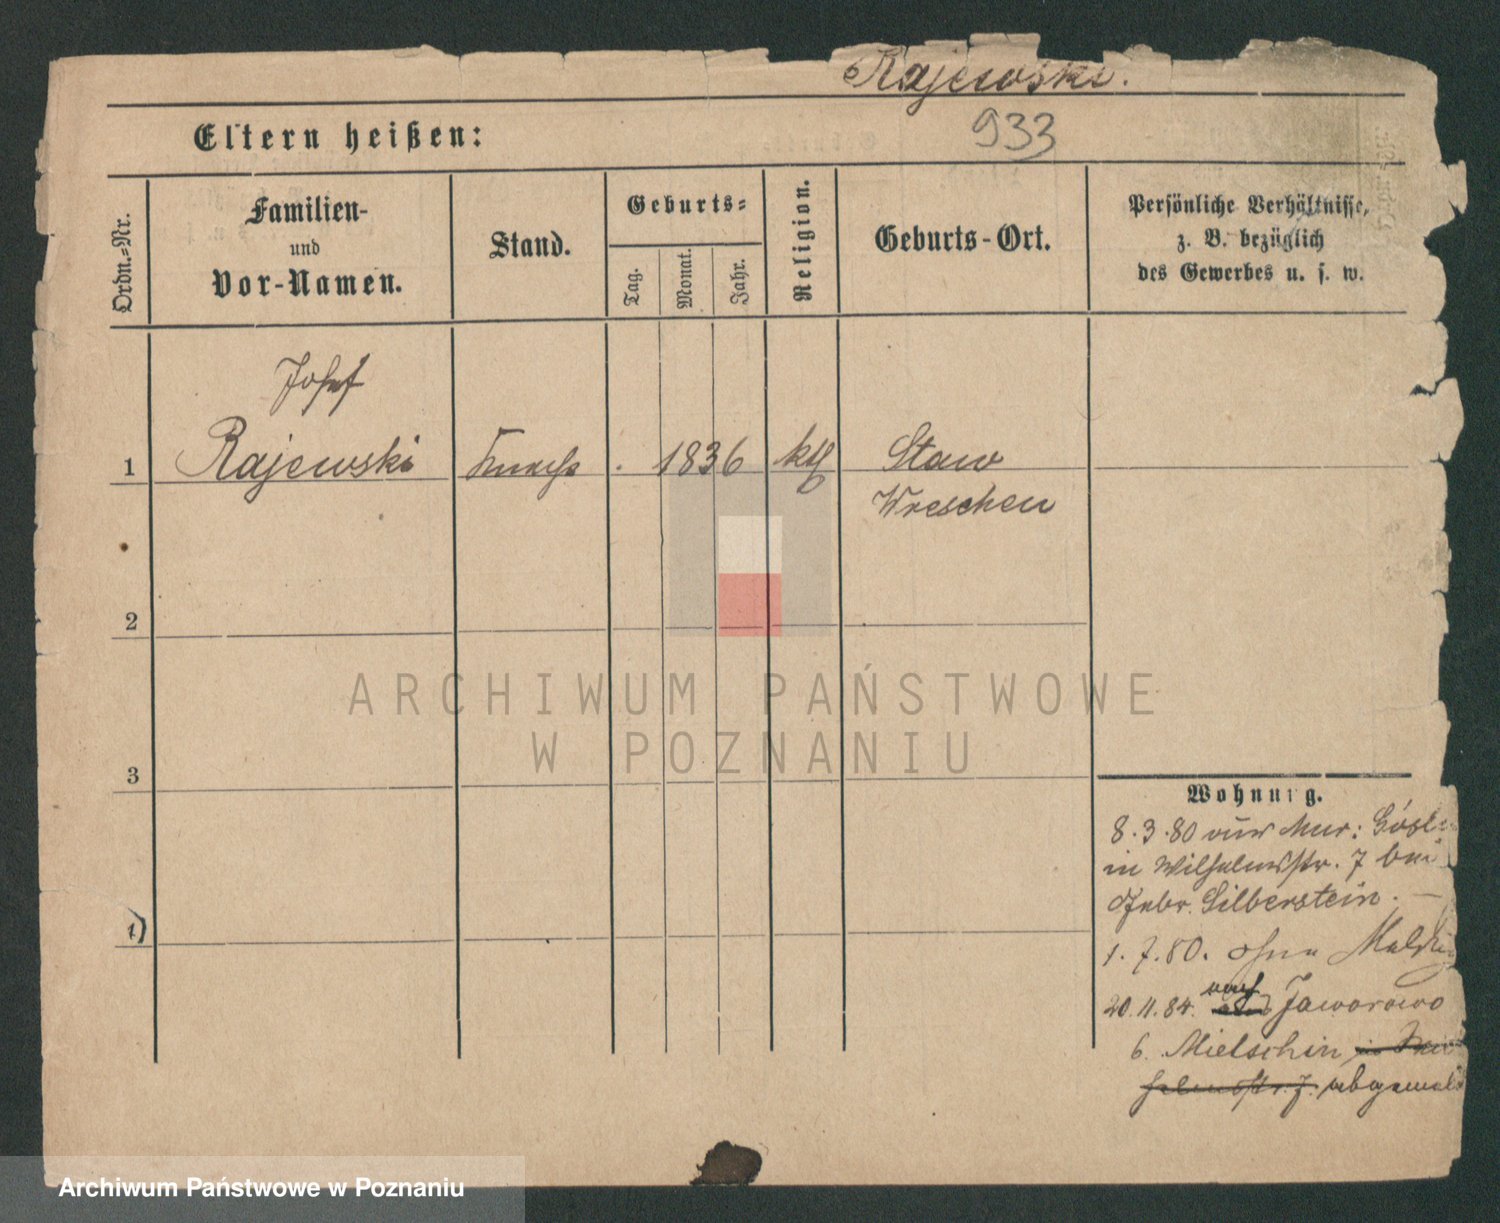 Rajewski.
Eltern heißen:
933
Ordn.-Nr.
Familien-
und
Vor-Namen.
Stand.
Geburts-
Tag.
Monat.
Jahr.
Religion.
Geburts-Ort.
Persönliche Verhältnisse,
z. B. bezüglich
des Gewerbes u. s. w.
Josef
1 Rajewski Knecht . 1836 kth Staw
Wreschen
2
3
ARCHIWUM PAŃSTWOWE
W POZNANIU
Wohnung.
8.3.80 aus Mur: Goslin
in Wilhelmsstr. 7 bei
Gebr. Silberstein.
1)
1.7.80. ohne Meldung
20.11.84. nach Jaworowo
b. Mielschin
abgemeld
Archiwum Państwowe w Poznaniu